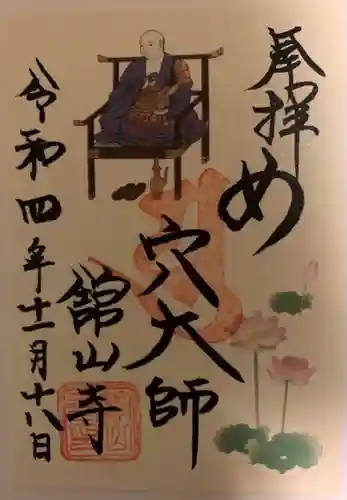 奉拝
め
穴大師
舘山寺
令和四年十一月十八日